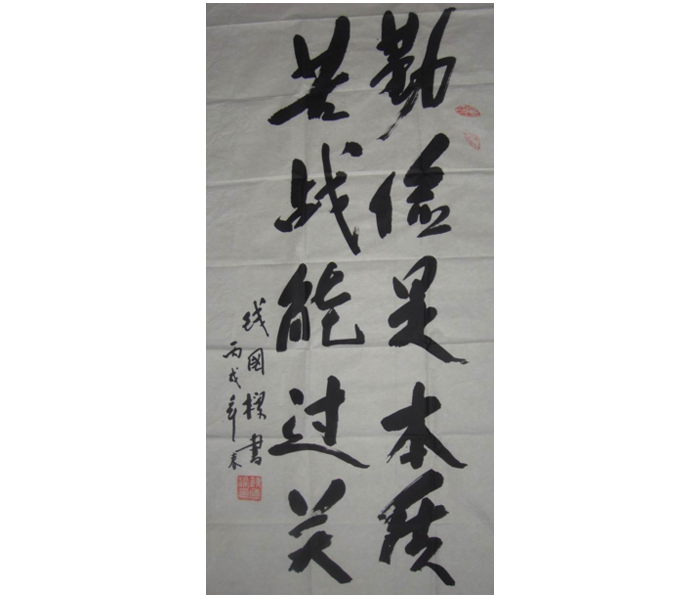 勤俭是本质
苦战能过关
钱国樑书
丙戌年春